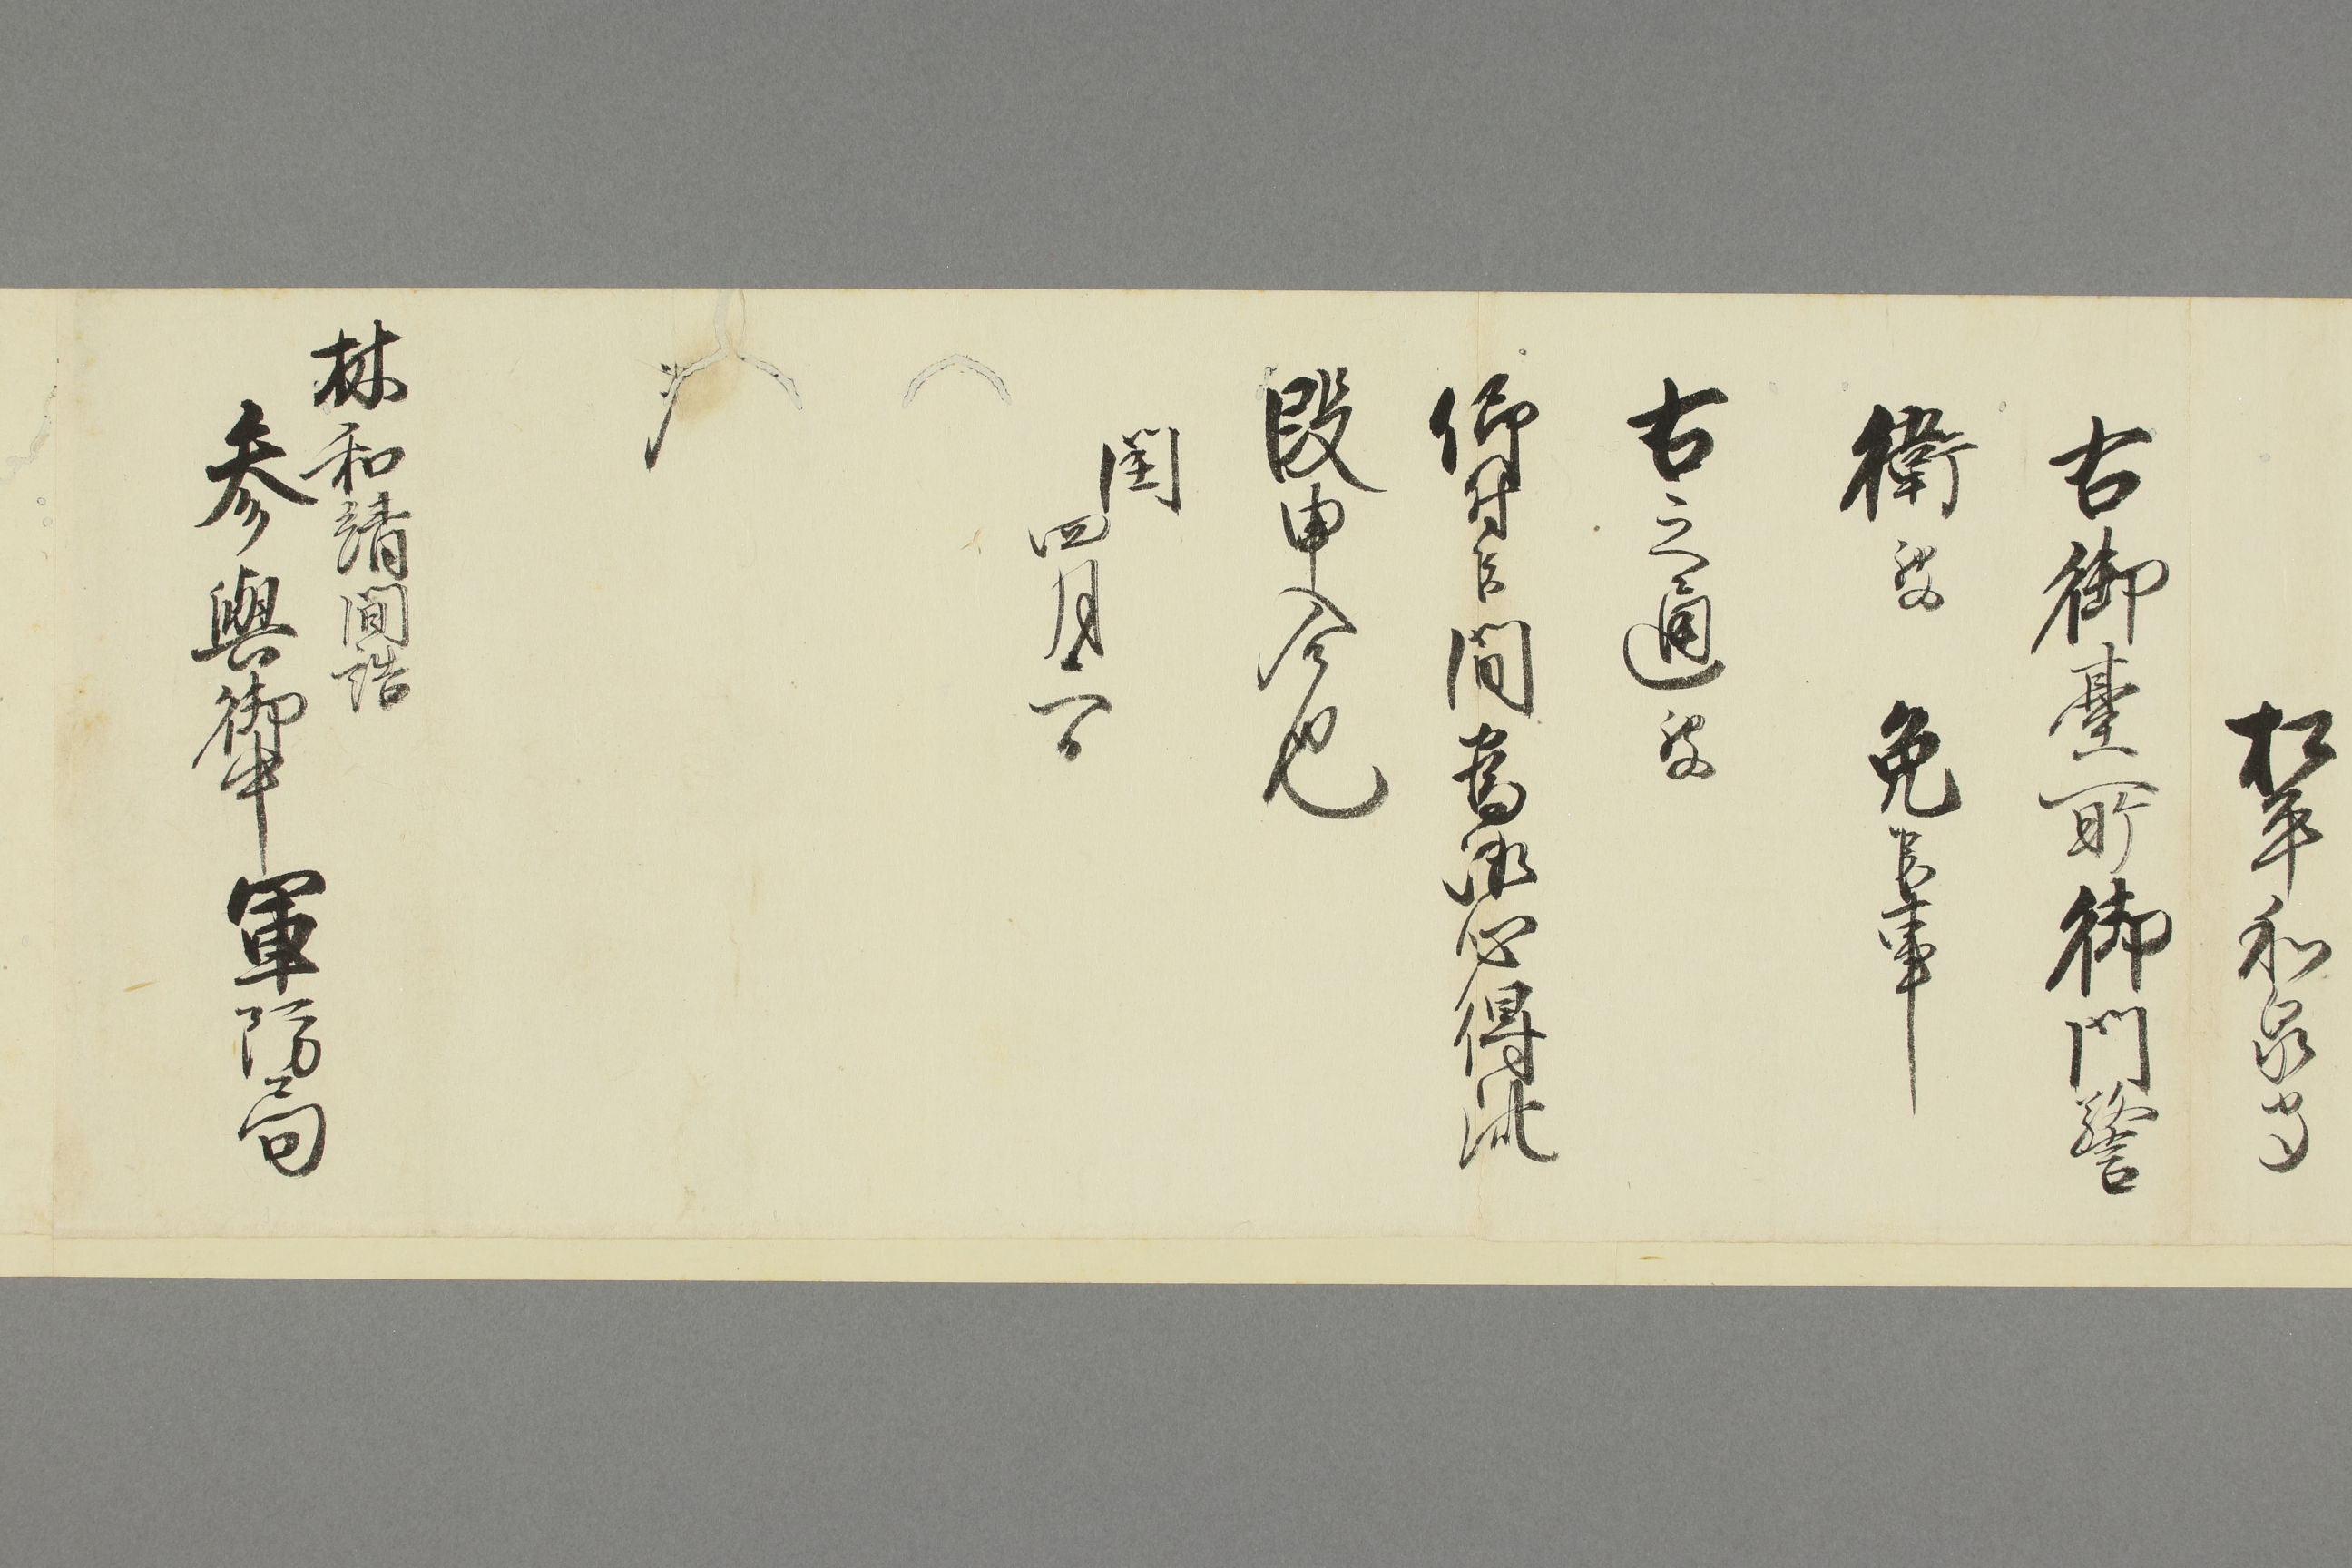 松平和泉守
右御臺所御門警
衛被　免候事
右之通被
仰付候間為御心得此
段申入候也
閏
四月日
林和靖間詰
参與御中
軍防局